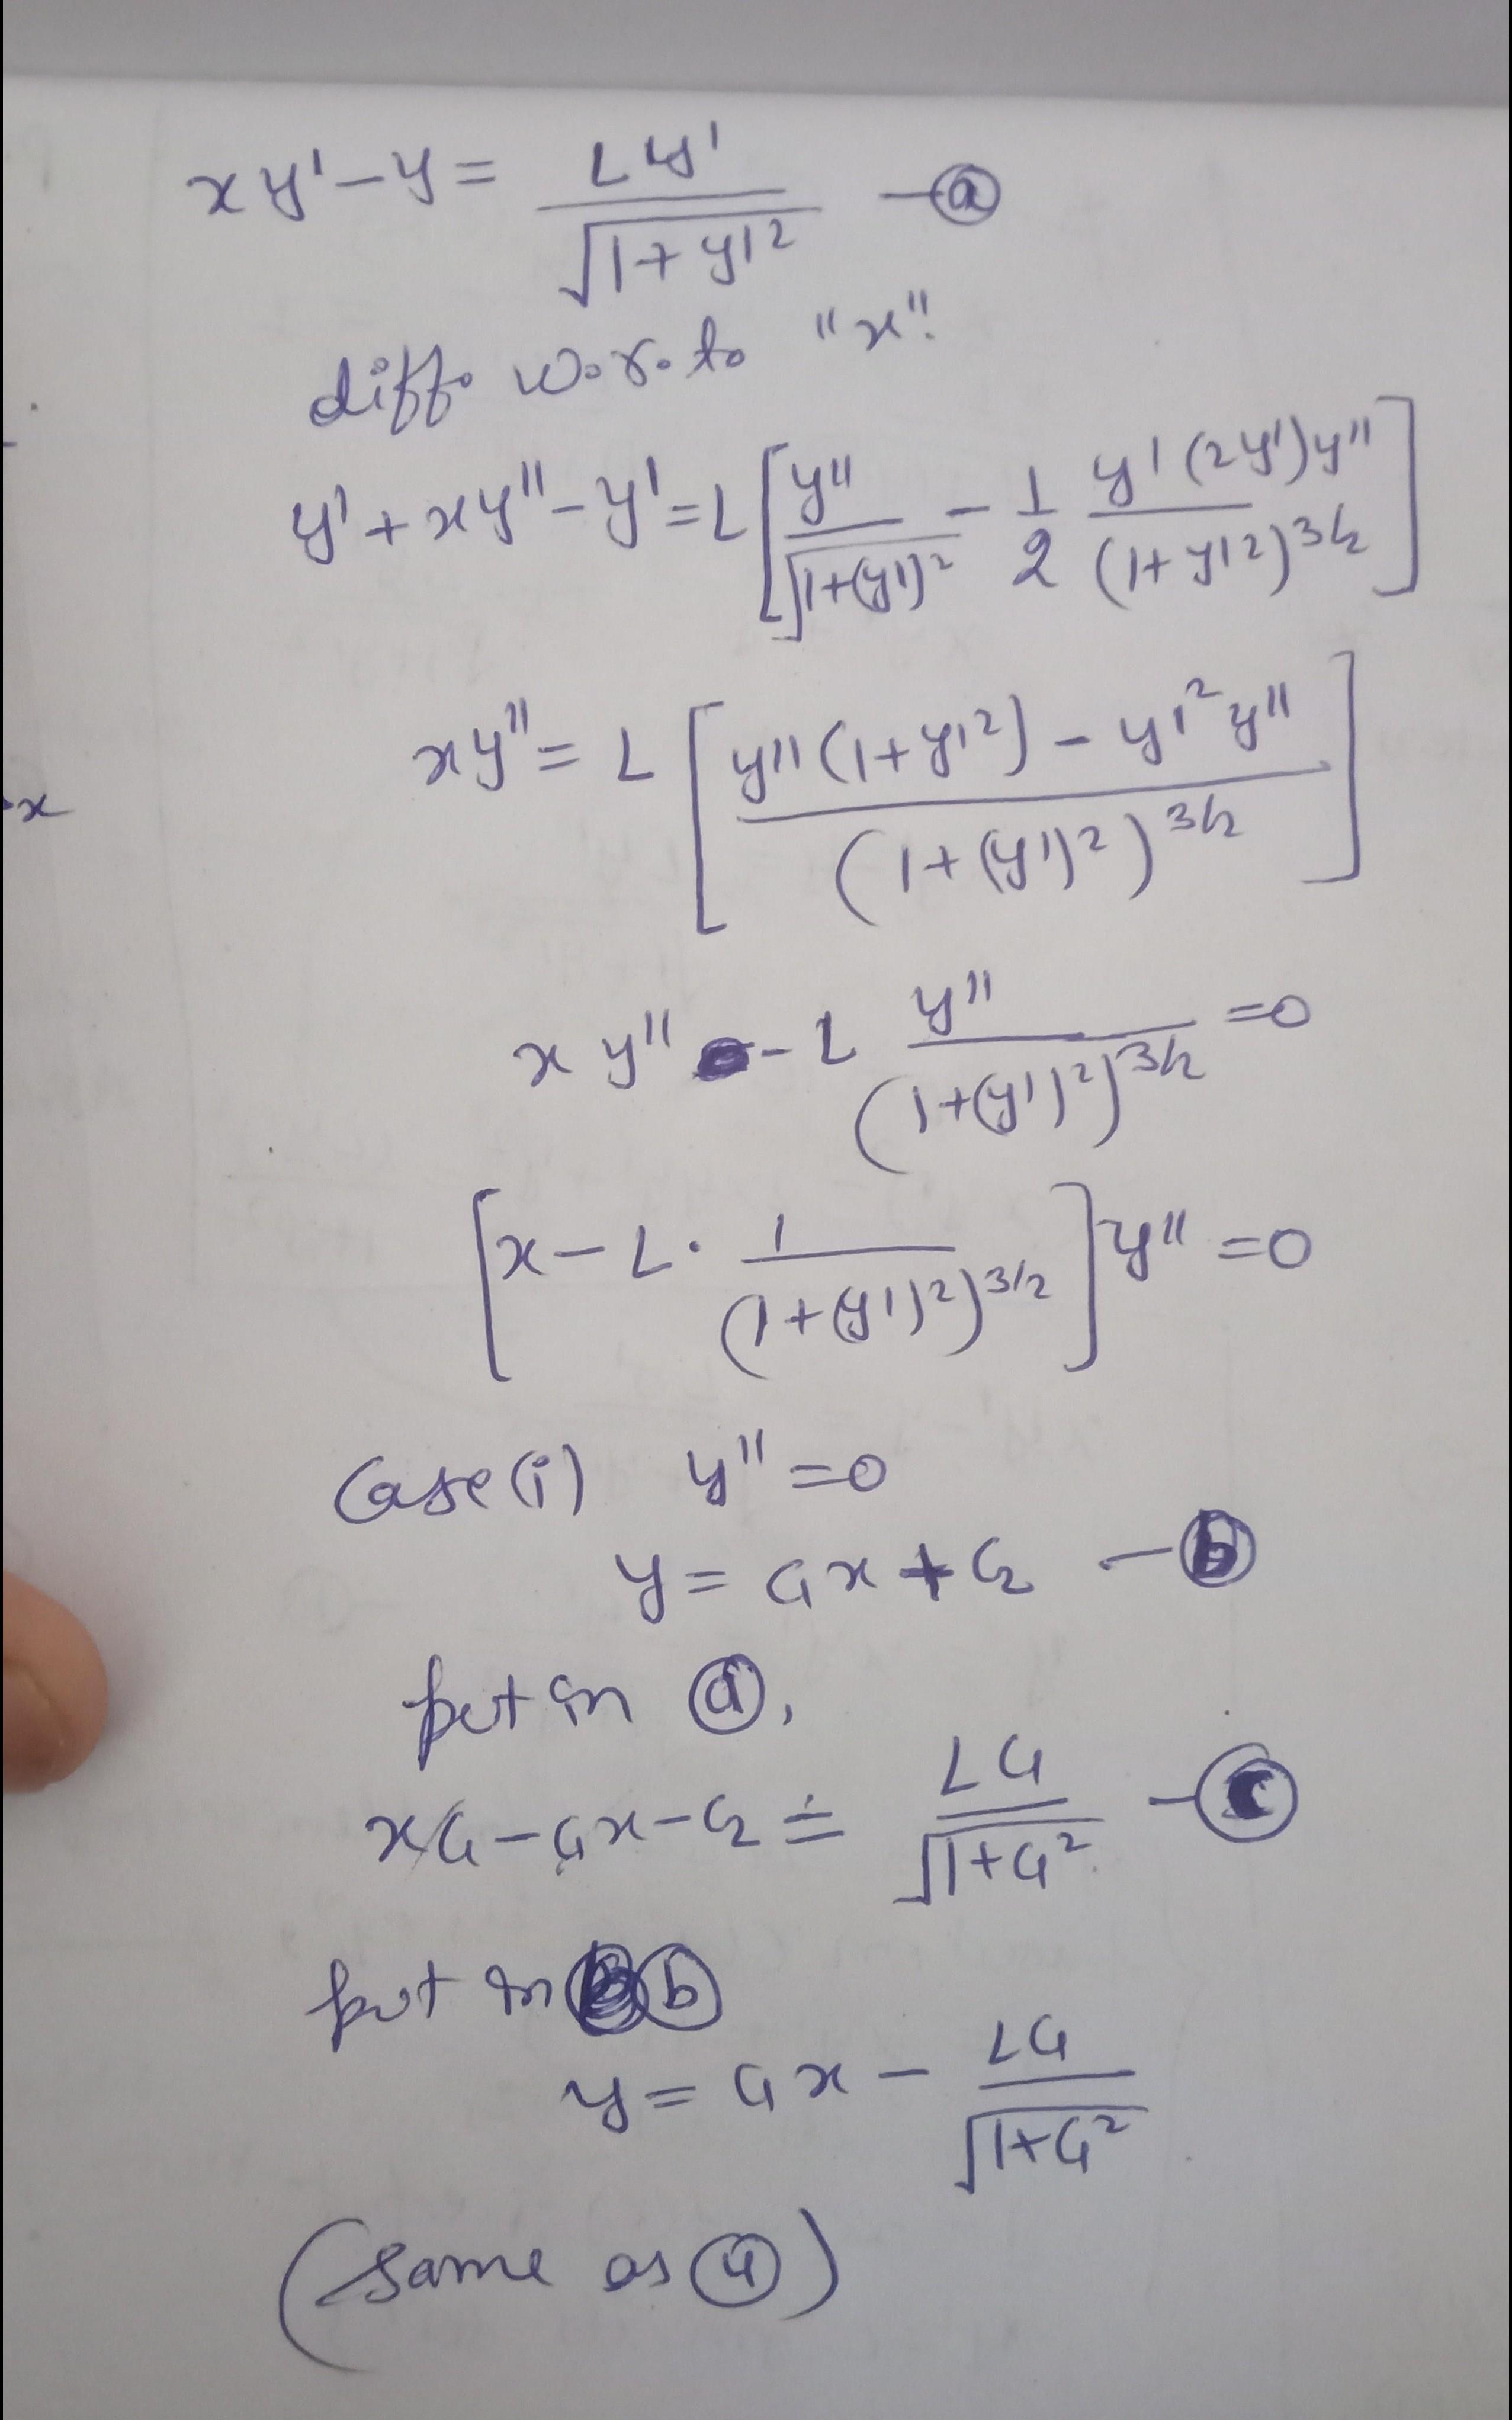 xy' - y = Ly' / √(1+y'²) — ⓐ
diff. w.r. to "x".
y' + xy'' - y' = L [ y'' / √(1+(y')²) - 1/2 y'(2y')y'' / (1+y'²)^3/2 ]
xy'' = L [ (y''(1+y'²) - y'²y'') / (1+(y')²)^3/2 ]
xy'' - L y'' / (1+(y')²)^3/2 = 0
[x - L · 1 / (1+(y')²)^3/2] y'' = 0
Case (i) y'' = 0
y = C₁x + C₂ — ⓑ
put in ⓐ,
xC₁ - C₁x - C₂ = LC₁ / √(1+C₁²) — ⓒ
put in ⓑ
y = C₁x - LC₁ / √(1+C₁²)
(Same as ④)
x